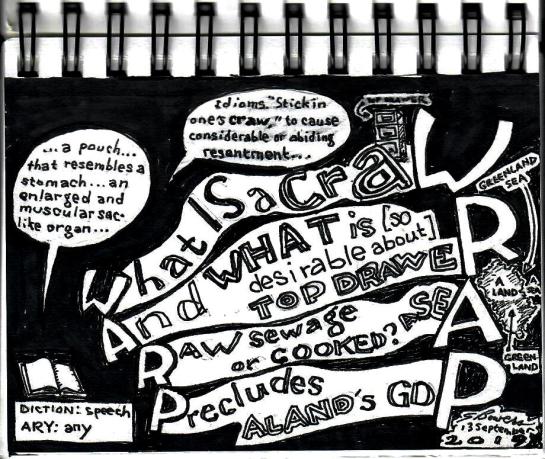 Idioms. "Stick in
one's craw," to cause
considerable or abiding
resentment...
...a pouch...
that resembles a
stomach...an
enlarged and
muscular sac-
like organ...
What IS a CraW
And WHAT is [so
desirable about]
TOP DRAWER
RAW sewage
or COOKED? A SEA
Precludes
ALAND's GDP
GREENLAND
SEA
A
LAND
GREEN-
LAND
DICTION: speech
ARY: any
13 September
2019